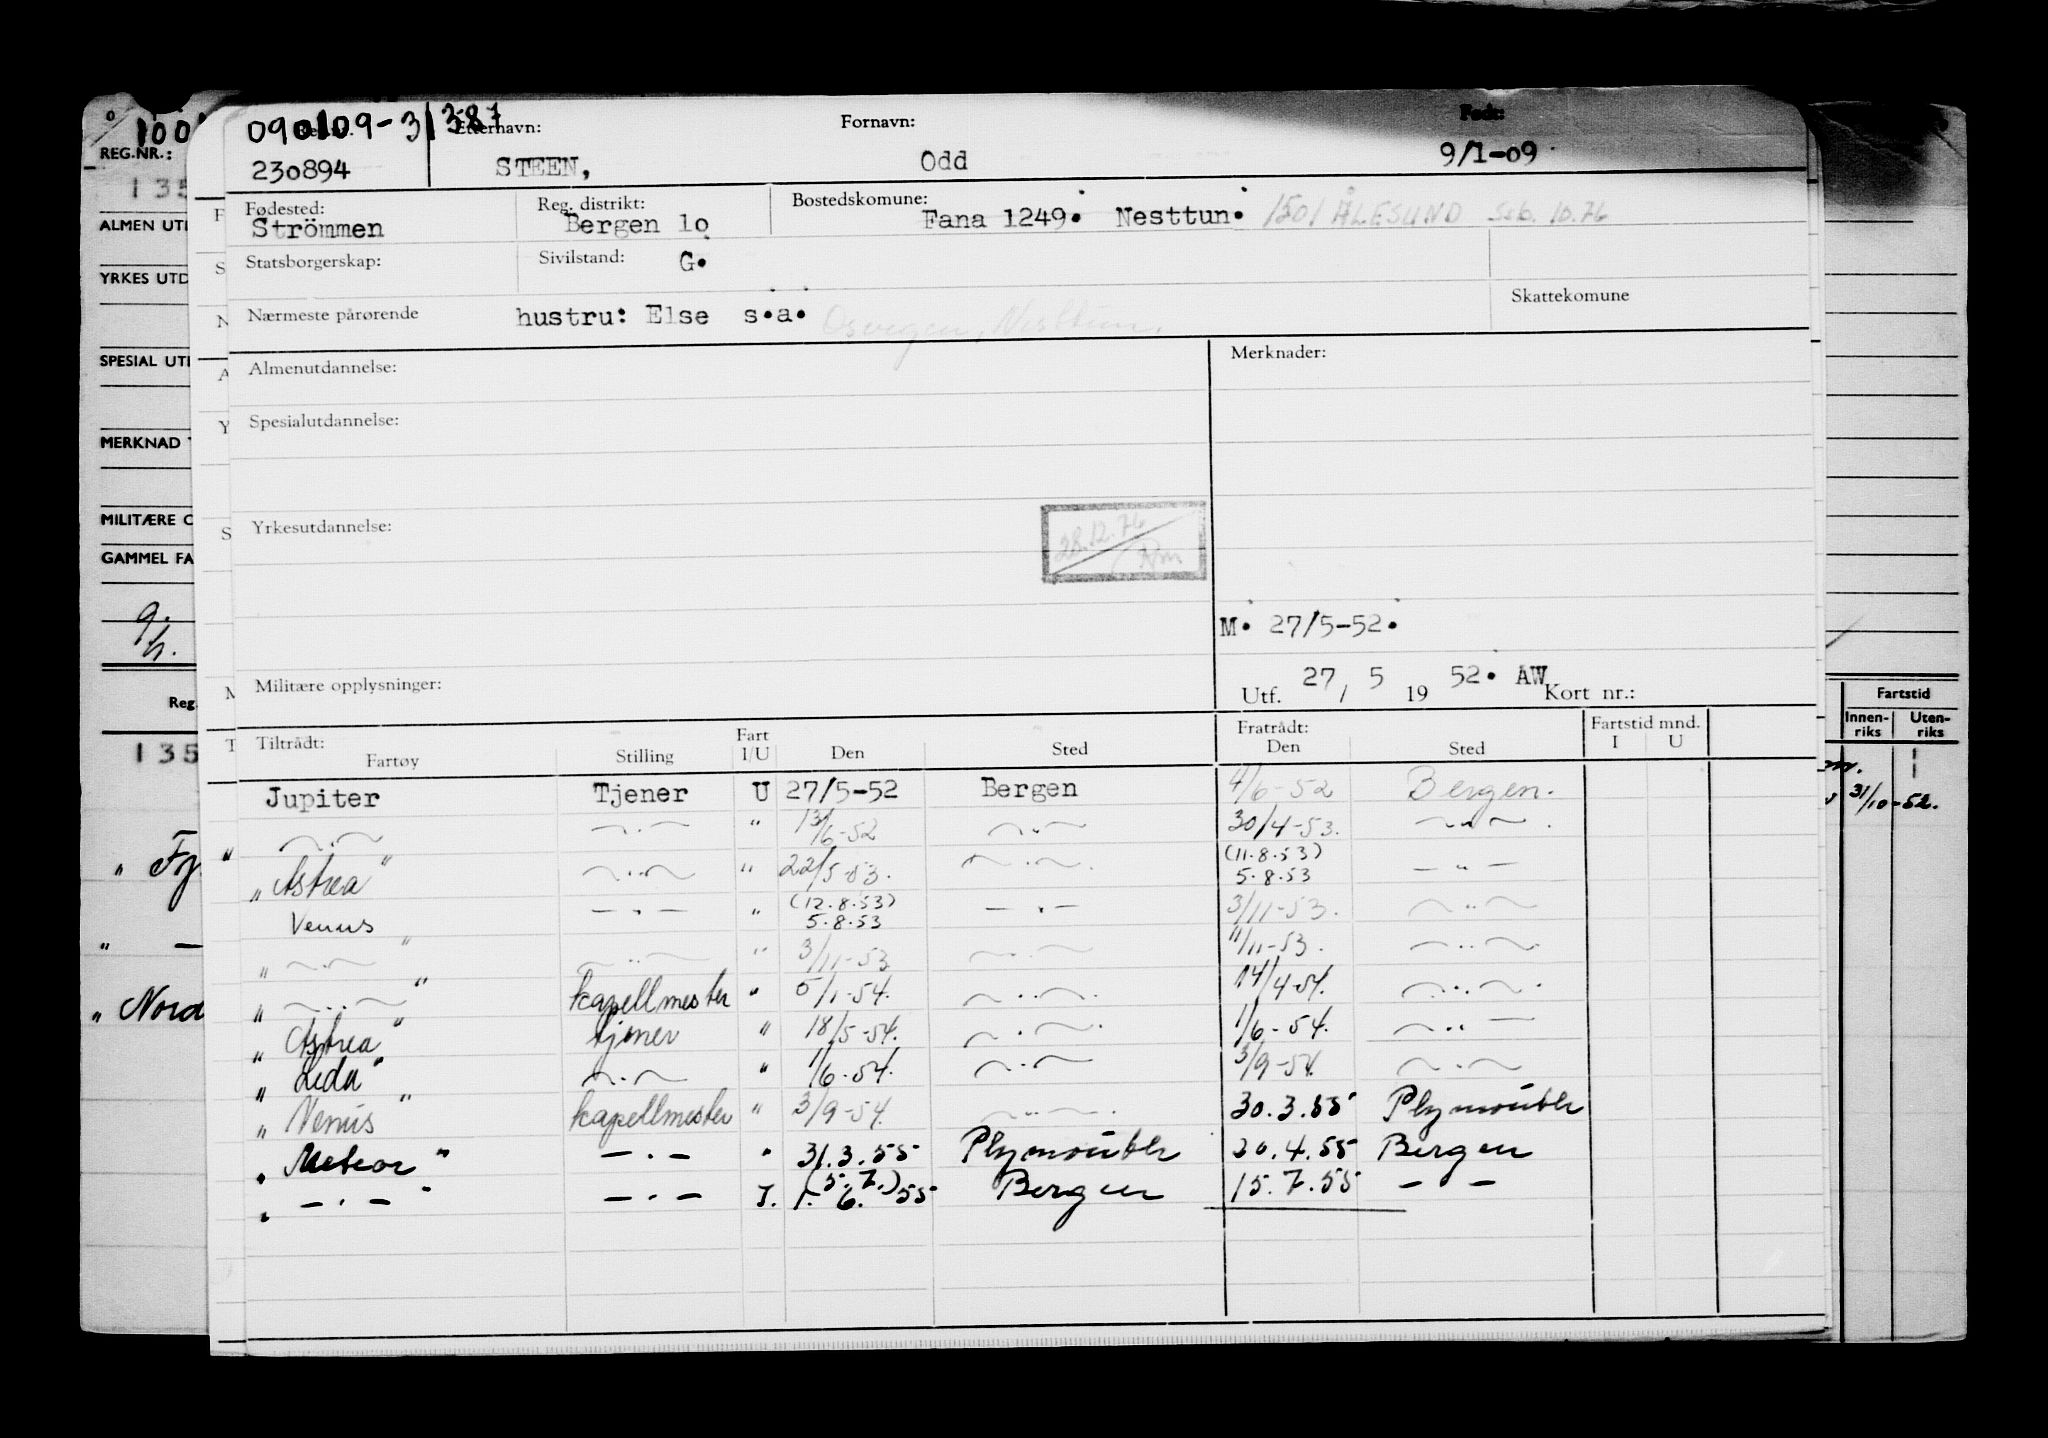 090109-31387
Etternavn:
Fornavn:
Født:
230894
STEEN,
Odd
9/1-09
Fødested:
Strömmen
Reg. distrikt:
Bergen 1o
Bostedskomune:
Fana 1249. Nesttun. 1501 ÅLESUND Seb. 10.76
Statsborgerskap:
Sivilstand: G.
Nærmeste pårørende
hustru: Else s.a. Osvegen, Nesttun.
Skattekomune
Almenutdannelse:
Merknader:
Spesialutdannelse:
Yrkesutdannelse:
28.12.76
M. 27/5-52.
Militære opplysninger:
Utf. 27 / 5 19 52. AW
Kort nr.:
Tiltrådt:
Fartøy
Stilling
Fart
I/U
Den
Sted
Fratrådt:
Den
Sted
Fartstid mnd.
I U
Jupiter Tjener U 27/5-52 Bergen 4/6-52 Bergen.
—.— —.— " 13/6-52 —"— 30/4-53. —"— .
"Astrea" —.— " 22/5-53. —.—. (11.8.53) 5.8.53 — " —
Venus —.— " (12.8.53) 5.8.53 —.— 3/11-53. —"—
" —.— " —..— " 3/11-53 —..— 11/11-53. —..—
" —..— " kapellmester " 5/1-54. —..—. 14/4-54. —..—.
"Astrea" tjener " 18/5-54. —.—. 1/6-54. —..—
"Leda" —.— " 1/6-54. —.— 3/9-54. —.—
"Venus" kapellmester " 3/9-54. —..—. 30.3.55 Plymouth
"Meteor" —.— " 31.3.55 Plymouth 20.4.55 Bergen
" —.— " —.— I. (5.7.) 1.6.55 Bergen 15.7.55 — —
REG.NR.:
135
ALMEN UT
YRKES UTD
SPESIAL UT
MERKNAD
MILITÆRE
GAMMEL FA
g.
h.
Reg.
135
" Nord
Fartstid
Innen-
riks
Uten-
riks
31/10-52.